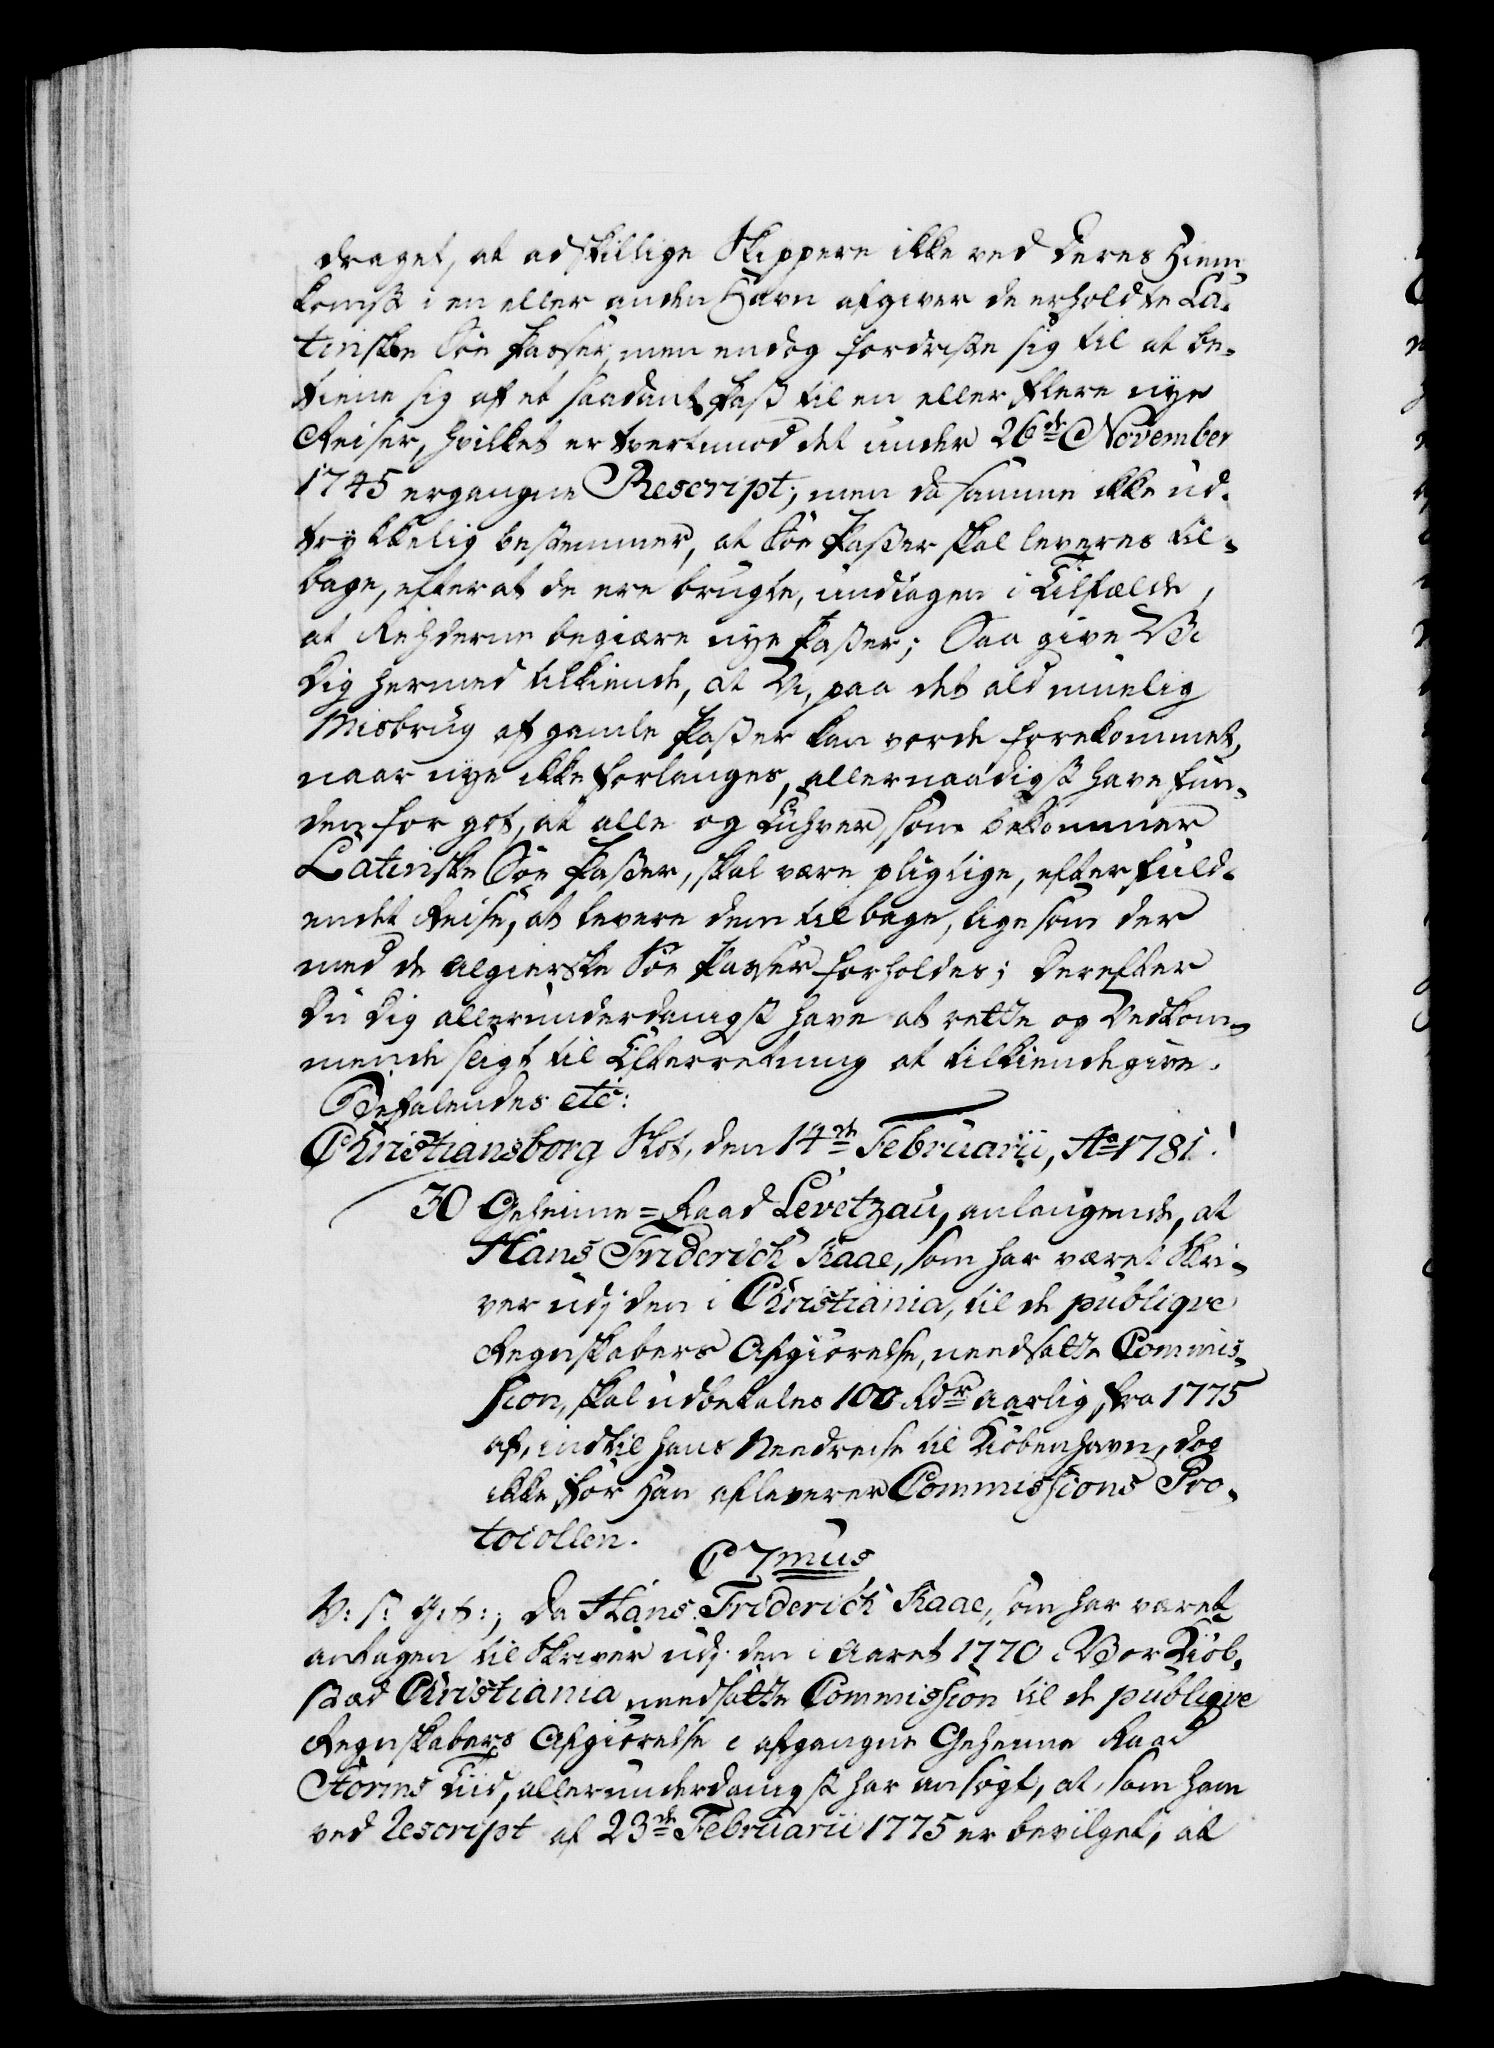 draget, at adskillige Skippere ikke ved deres Hiem-
komst i en eller anden Havn afgiver de erholdte La-
tinske Söe Passer, men endog fordriste sig til at be-
tiene sig af et saadant Pass til en eller flere nye
Reiser, hvilket er tvertimod det under 26de November
1745 ergangne Rescript; men da samme ikke ud-
trykkelig bestemmer, at Söe Passer skal leveres til-
bage, efter at de ere brugte, undtagen i Tilfælde,
at Rehderne begiære nye Passer; Saa give Vi
Dig hermed tilkiende, at Vi, paa det ald muelig
Misbrug af gamle Passer kan vorde forekommet,
naar nye ikke forlanges, allernaadigst have fun-
den for got, at alle og Enhver, som bekommer
Latinske Söe Passer, skal være pligtige, efter fuld-
endet Reise, at levere dem tilbage, ligesom der
med de Algierske Söe Passer forholdes; Derefter
Du Dig allerunderdanigst have at rette og Vedkom-
mende sligt til Efterretning at tilkiendegive.
Befalendes etc:
Christiansborg Slot, den 14de Februarii, Ao 1781.
30 Geheime=Raad Levetzau, anlangende, at
Hans Friderich Kaae, som har været Skri-
ver udj den i Christiania, til de publiqve
Regnskabers Afgiörelse, needsatte Commis-
sion, skal udbetales 100 Rdr aarlig, fra 1775
af, indtil hans Needreise til Kiöbenhavn, dog
ikke för Han afleverer Commissions Pro-
tocollen.
C 7mus
V: S: G: T:; Da Hans Friderich Kaae, som har været
antagen til Skriver udj den i Aaret 1770 i Vor Kiöb-
stæd Christiania needsatte Commission til de publiqve
Regnskabers Afgiörelse i afgangne Geheime Raad
Storms Tiid, allerunderdanigst har ansögt, at, som ham
ved Rescript af 23de Februarii 1775 er bevilget, at